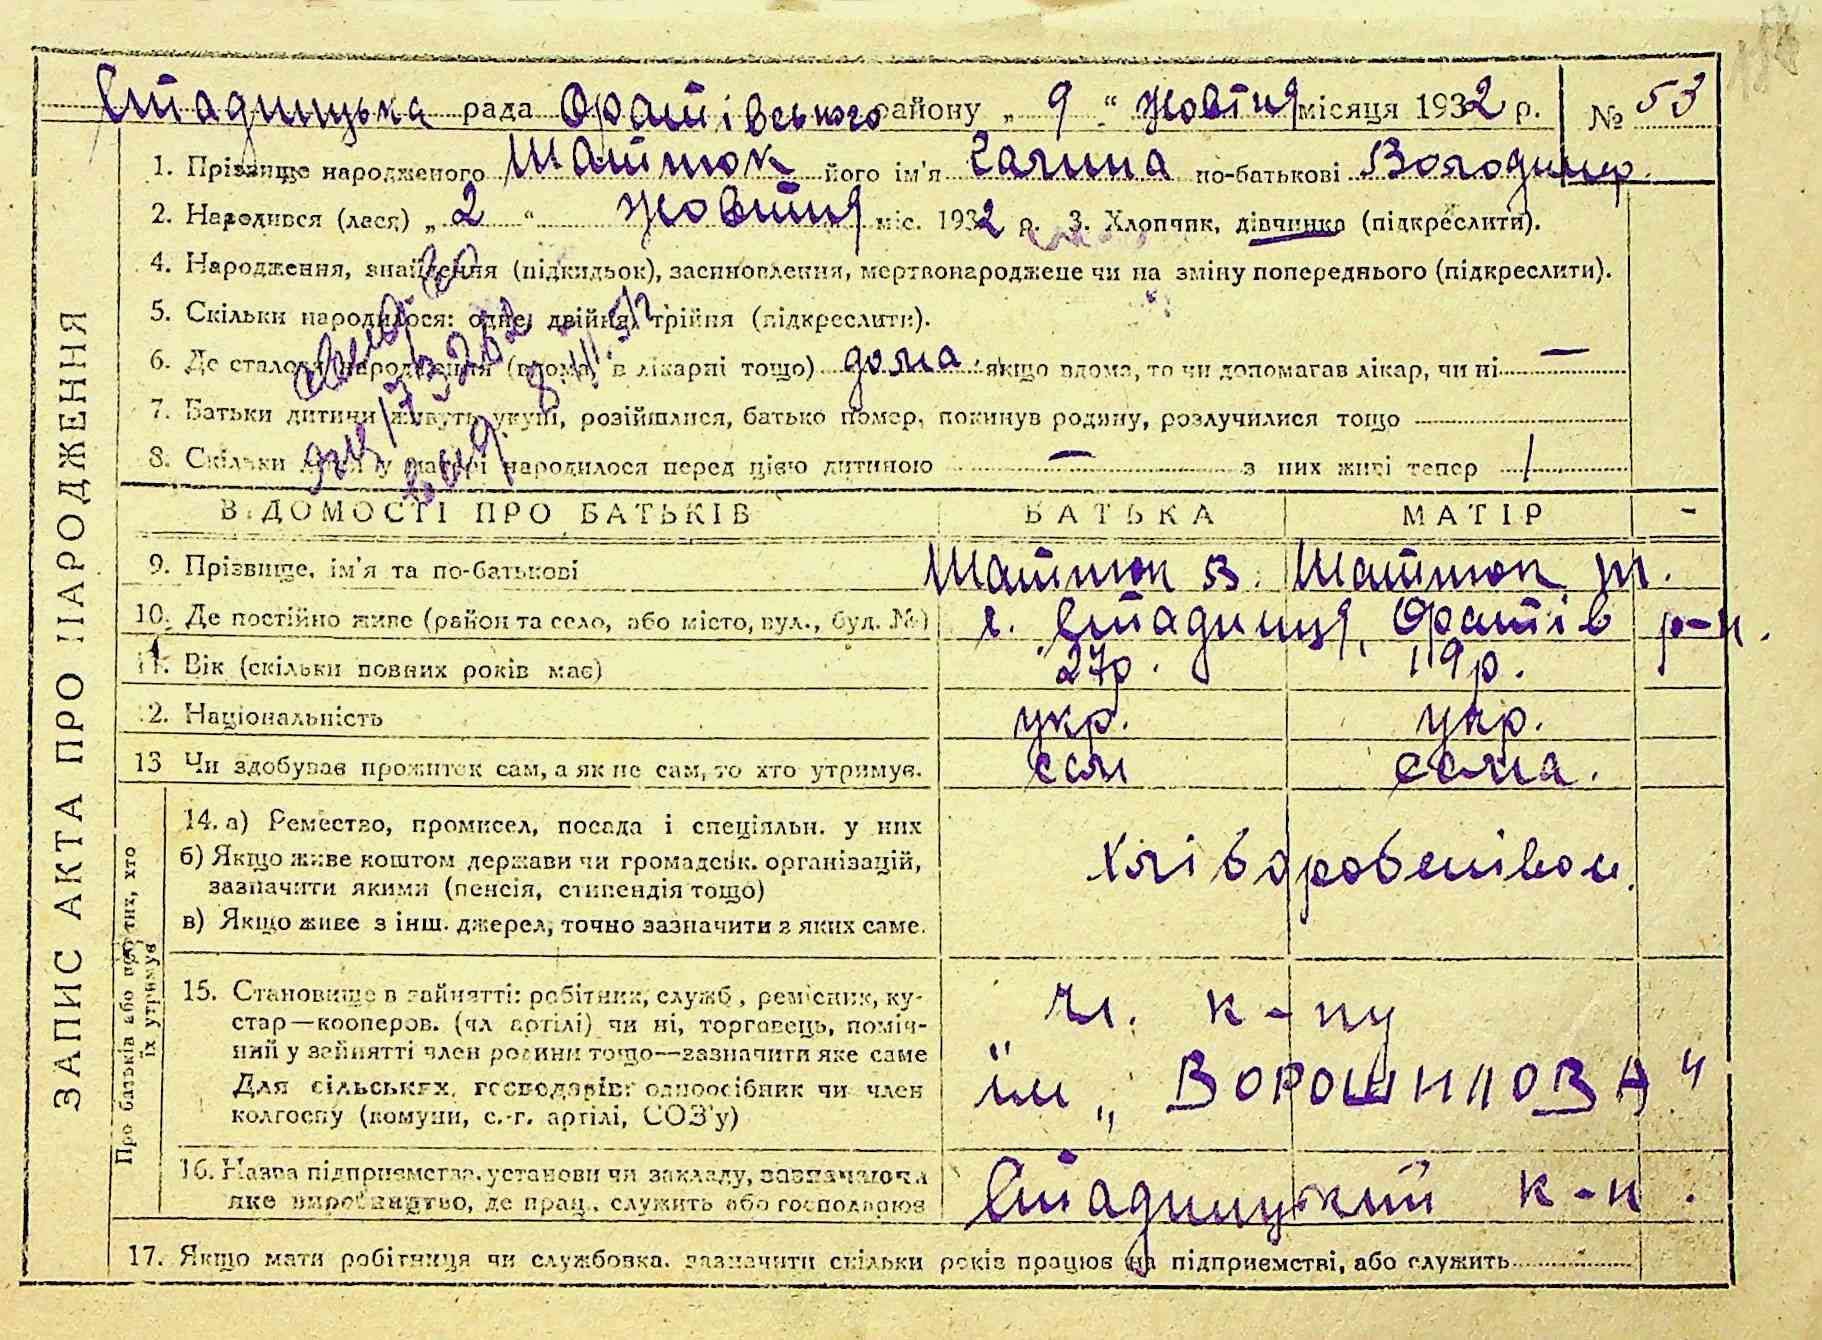 Стадницька рада Оратівського району „ 9 “ жовтня місяця 1932 р. № 53
1. Прізвище народженого Шаптюк його ім'я Галина по-батькові Володимир.
2. Народився (лася) „ 2 “ жовтня міс. 1932 р. 3. Хлопчик, дівчинка (підкреслити).
4. Народження, знайдення (підкидьок), засиновлення, мертвонароджене чи на зміну попереднього (підкреслити).
5. Скільки народилося: одне, двійня, трійня (підкреслити).
6. Де сталося народження (вдома, в лікарні тощо) дома якщо вдома, то чи допомагав лікар, чи ні —
7. Батьки дитини живуть укупі, розійшлися, батько помер, покинув родину, розлучилися тощо
8. Скільки дітей у матері народилося перед цією дитиною — з них живі тепер /
ВІДОМОСТІ ПРО БАТЬКІВ БАТЬКА МАТІР -
9. Прізвище, ім'я та по-батькові Шаптюк В. Шаптюк М.
10. Де постійно живе (район та село, або місто, вул., буд. №) с. Стадниця, Оратів р-н.
11. Вік (скільки повних років має) 27р. 19р.
12. Національність укр. укр.
13 Чи здобував прожиток сам, а як не сам, то хто утримув. сам сама.
14. а) Ремество, промисел, посада і спеціяльн. у них
б) Якщо живе коштом держави чи громадськ. організацій,
зазначити якими (пенсія, стипендія тощо)
в) Якщо живе з інш. джерел, точно зазначити з яких саме.
хліборобством.
15. Становище в зайнятті: робітник, служб., ремісник, ку-
стар—кооперов. (чл артілі) чи ні, торговець, поміч-
ний у зайнятті член родини тощо—зазначити яке саме
Для сільських господарів: одноосібник чи член
колгоспу (комуни, с.-г. артілі, СОЗ'у)
чл. к-пу
ім „ ВОРОШИЛОВА "
16. Назва підприємства, установи чи закладу, зазначаючи
яке виробництво, де прац., служить або господарює
Стадницький к-п.
17. Якщо мати робітниця чи службовка, зазначити скільки років працює на підприємстві, або служить
ЗАПИС АКТА ПРО НАРОДЖЕННЯ
Про батьків або про тих, хто
їх утримує